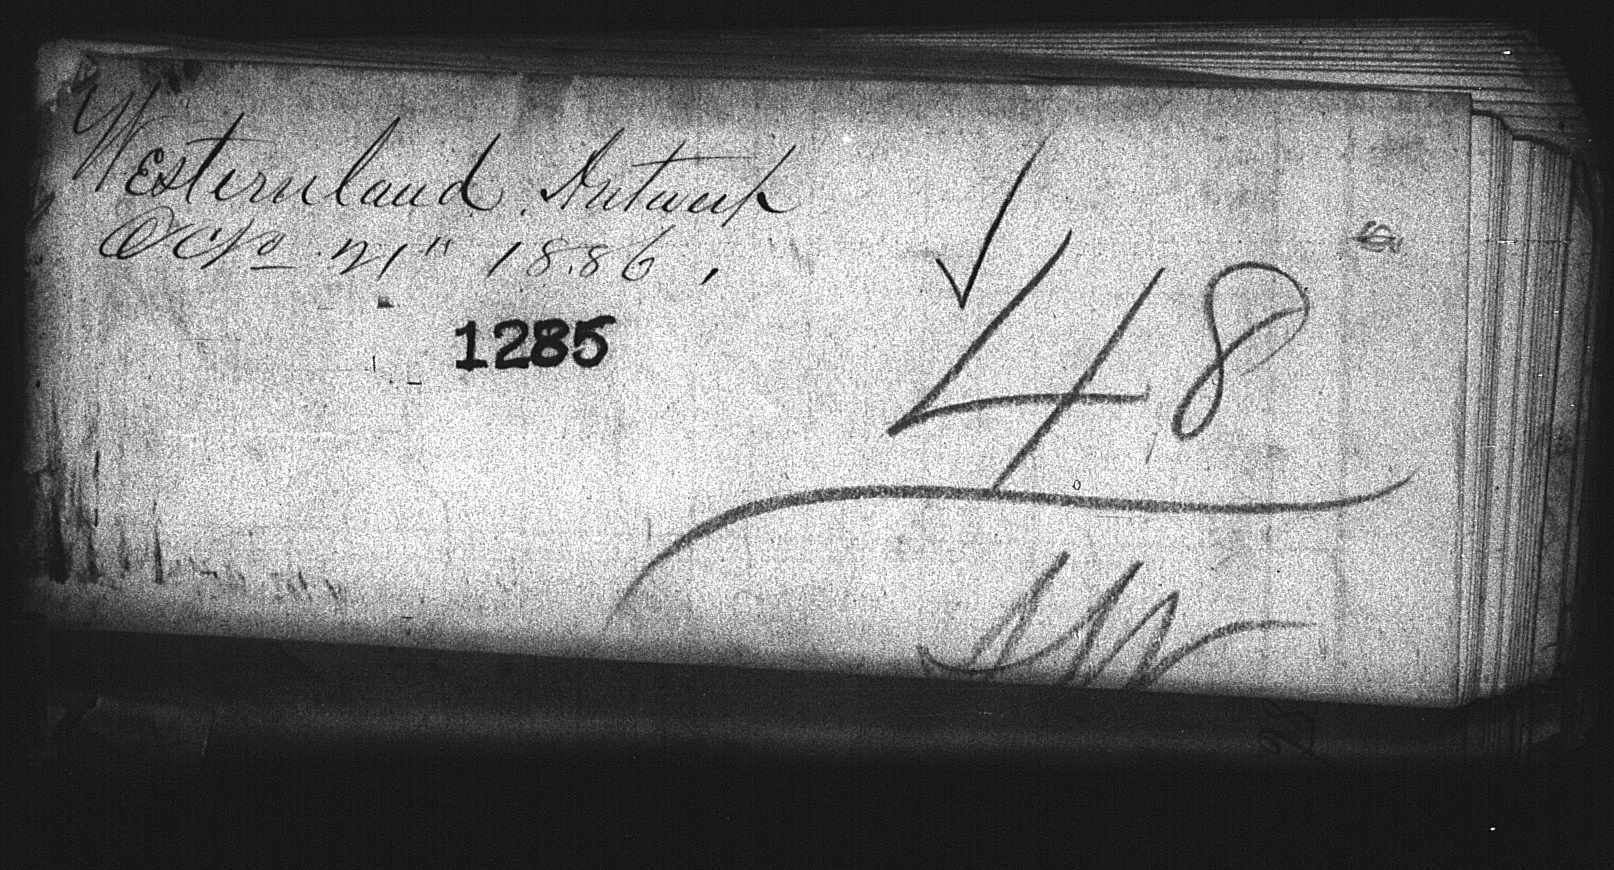 Westernland Antwerp
Octo 21" 1886,
1285
48